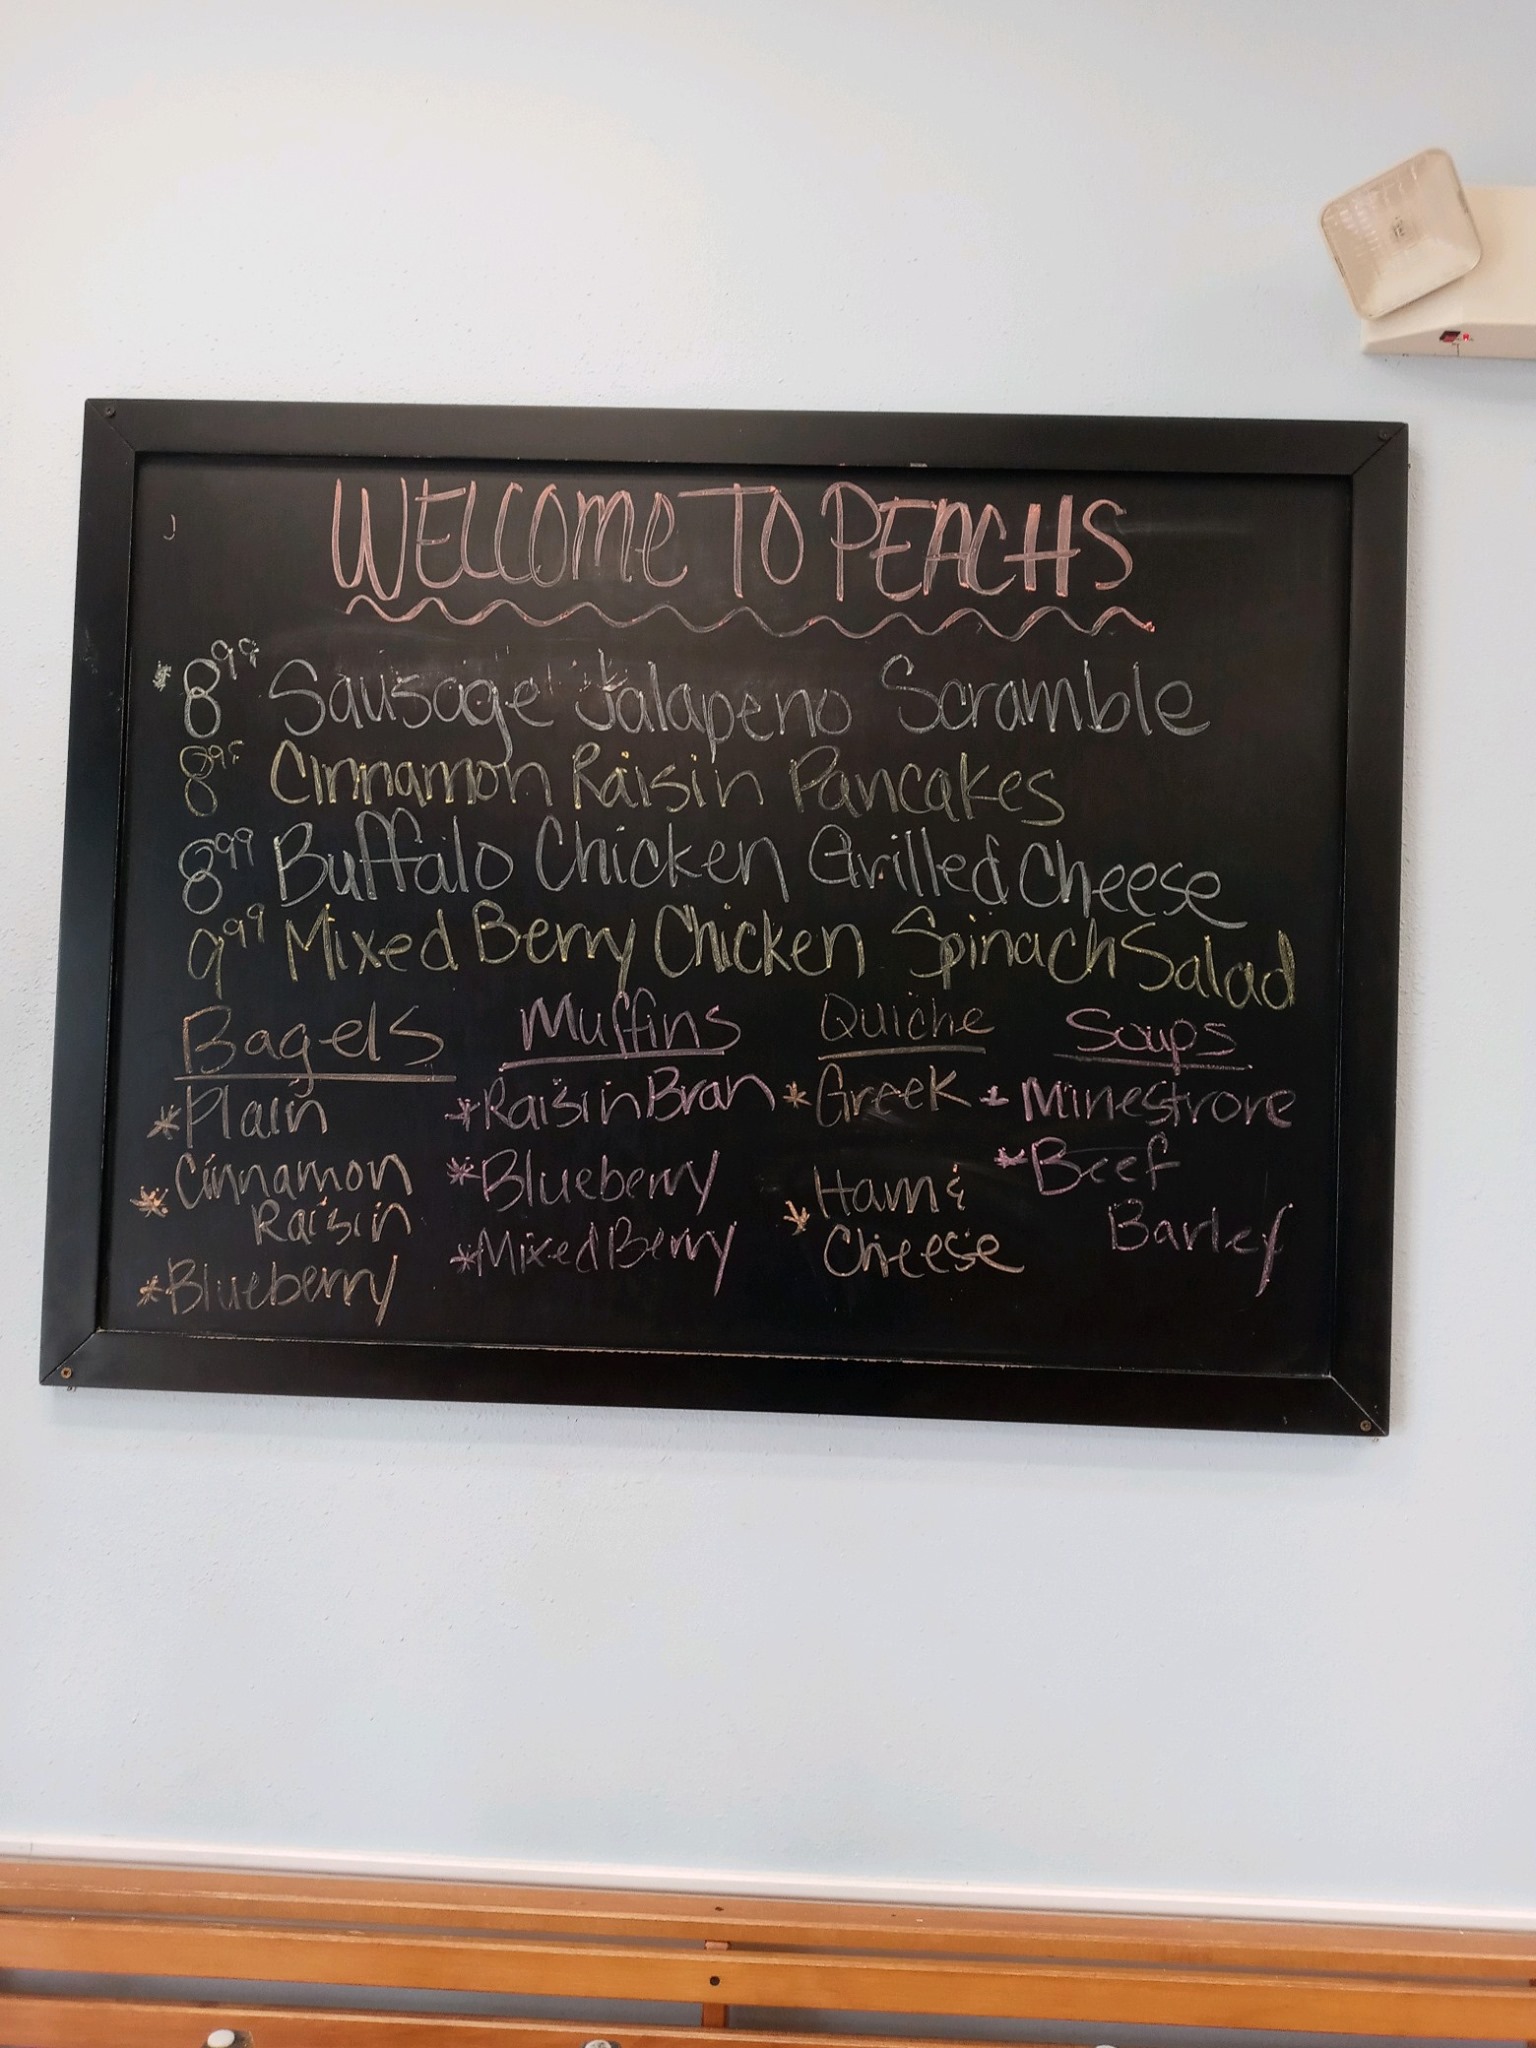 WELCOME TO PEACHS
8.99 Sausage Jalapeno Scramble
8.99 Cinnamon Raisin Pancakes
8.99 Buffalo Chicken Grilled Cheese
9.99 Mixed Berry Chicken Spinach Salad
Bagels
*Plain
*Cinnamon
Raisin
*Blueberry
Muffins
*Raisin Bran
*Blueberry
*Mixed Berry
Quiche
*Greek
*Ham &
Cheese
Soups
*Minestrore
*Beef
Barley